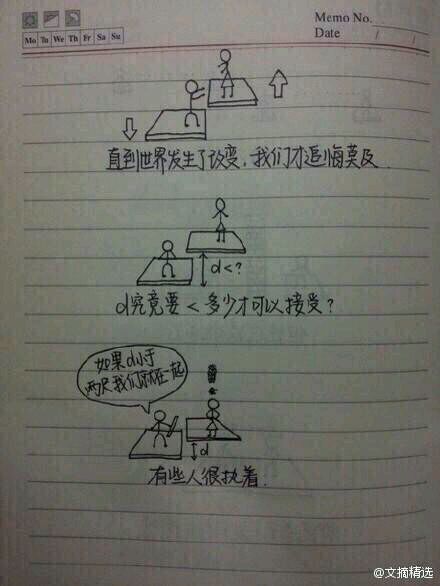 Memo No.
Date / /
Mo Tu We Th Fr Sa Su
直到世界发生了改变，我们才追悔莫及
d<?
d究竟要<多少才可以接受?
如果d小于
两尺我们就在一起
d
有些人很执着.
@文摘精选